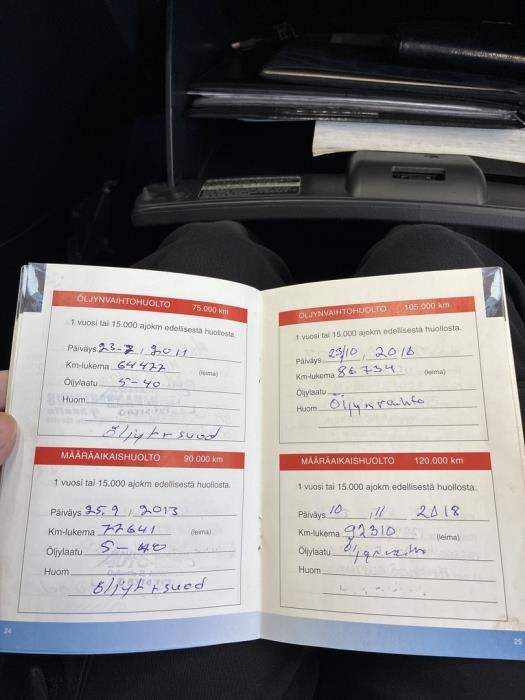 ÖLJYNVAIHTOHUOLTO 75.000 km
1 vuosi tai 15.000 ajokm edellisestä huollosta.
Päiväys 23-7, 2011
Km-lukema 64477 (leima)
Öljylaatu 5-40
Huom
Öljyt+suod
MÄÄRÄAIKAISHUOLTO 90.000 km
1 vuosi tai 15.000 ajokm edellisestä huollosta.
Päiväys 25.9, 2013
Km-lukema 77641 (leima)
Öljylaatu 5-40
Huom
Öljyt+suod
24
ÖLJYNVAIHTOHUOLTO 105.000 km
1 vuosi tai 15.000 ajokm edellisestä huollosta.
Päiväys 23/10, 2016
Km-lukema 86734 (leima)
Öljylaatu
Huom Öljynvaihto
MÄÄRÄAIKAISHUOLTO 120.000 km
1 vuosi tai 15.000 ajokm edellisestä huollosta.
Päiväys 10, 11 2018
Km-lukema 92310 (leima)
Öljylaatu Öljynvaihto
Huom
25